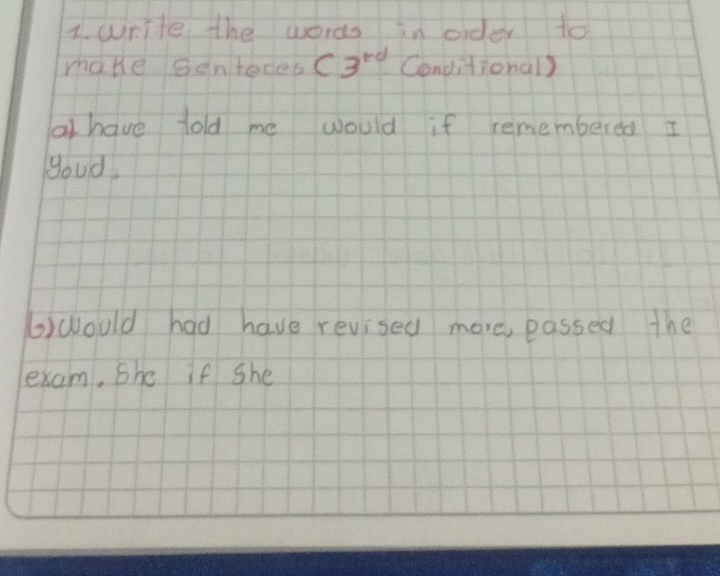 1. write the words in order to
make Senteces (3rd Conditional)
a) have told me would if remembered I
youd.
b) Would had have revised more, passed the
exam. She if She